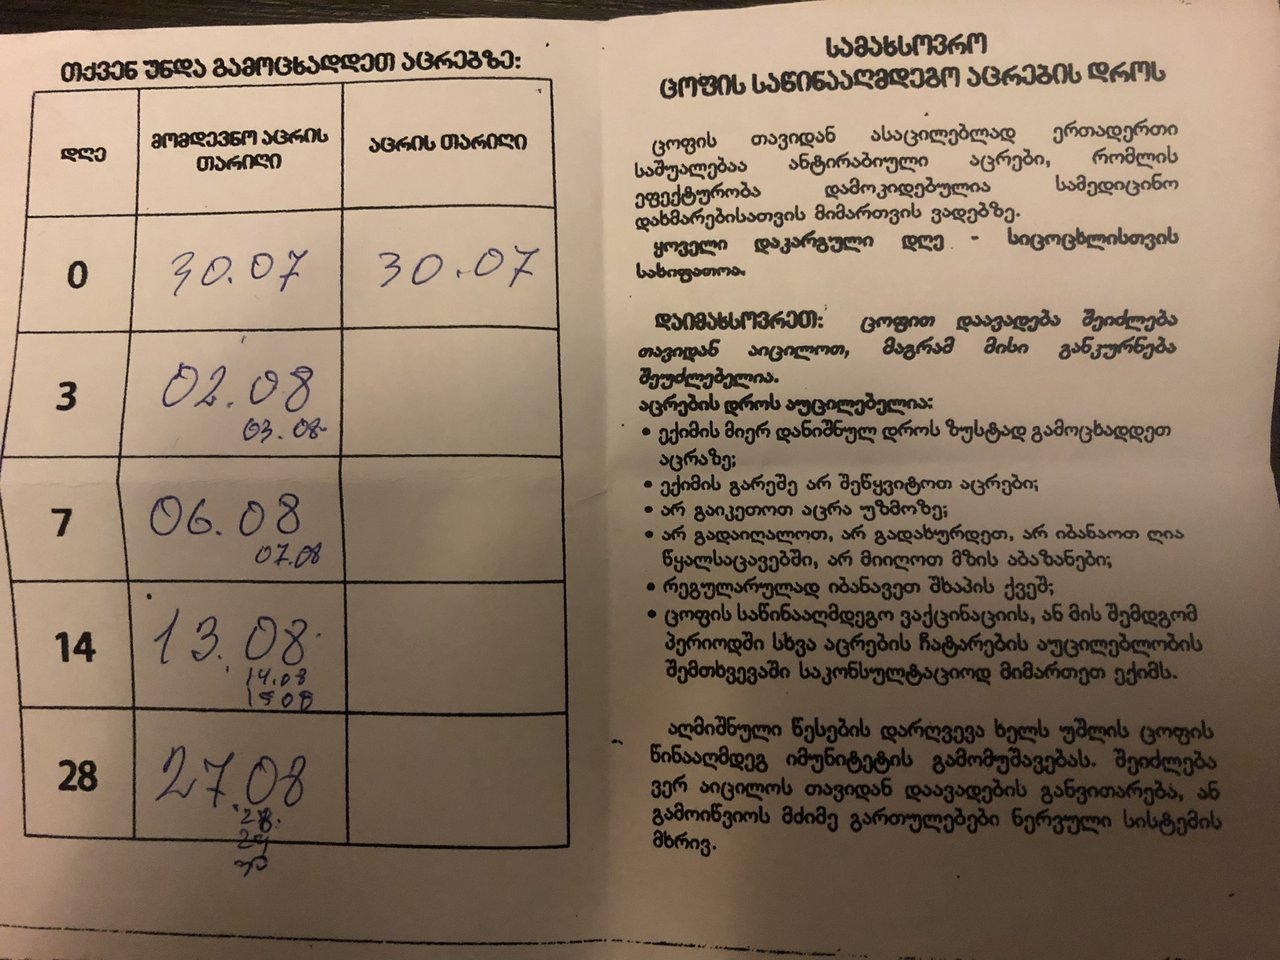 თქვენ უნდა გამოცხადდეთ აცრებზე:
დღე
მომდევნო აცრის
თარიღი
აცრის თარიღი
0
30.07
30.07
3
02.08
03.08
7
06.08
07.08
14
13.08
14.08
15 08
28
27.08
28.
29
30
სამახსოვრო
ცოფის საწინააღმდეგო აცრების დროს
ცოფის თავიდან ასაცილებლად ერთადერთი
საშუალებაა ანტირაბიული აცრები, რომლის
ეფექტურობა დამოკიდებულია სამედიცინო
დახმარებისათვის მიმართვის ვადებზე.
ყოველი დაკარგული დღე - სიცოცხლისთვის
სახიფათოა.
დაიმახსოვრეთ: ცოფით დაავადება შეიძლება
თავიდან აიცილოთ, მაგრამ მისი განკურნება
შეუძლებელია.
აცრების დროს აუცილებელია:
• ექიმის მიერ დანიშნულ დროს ზუსტად გამოცხადდეთ
აცრაზე;
• ექიმის გარეშე არ შეწყვიტოთ აცრები;
• არ გაიკეთოთ აცრა უზმოზე;
• არ გადაიღალოთ, არ გადახურდეთ, არ იბანაოთ ღია
წყალსაცავებში, არ მიიღოთ მზის აბაზანები;
• რეგულარულად იბანავეთ შხაპის ქვეშ;
• ცოფის საწინააღმდეგო ვაქცინაციის, ან მის შემდგომ
პერიოდში სხვა აცრების ჩატარების აუცილებლობის
შემთხვევაში საკონსულტაციოდ მიმართეთ ექიმს.
აღმიშნული წესების დარღვევა ხელს უშლის ცოფის
წინააღმდეგ იმუნიტეტის გამომუშავებას. შეიძლება
ვერ აიცილოს თავიდან დაავადების განვითარება, ან
გამოიწვიოს მძიმე გართულებები ნერვული სისტემის
მხრივ.